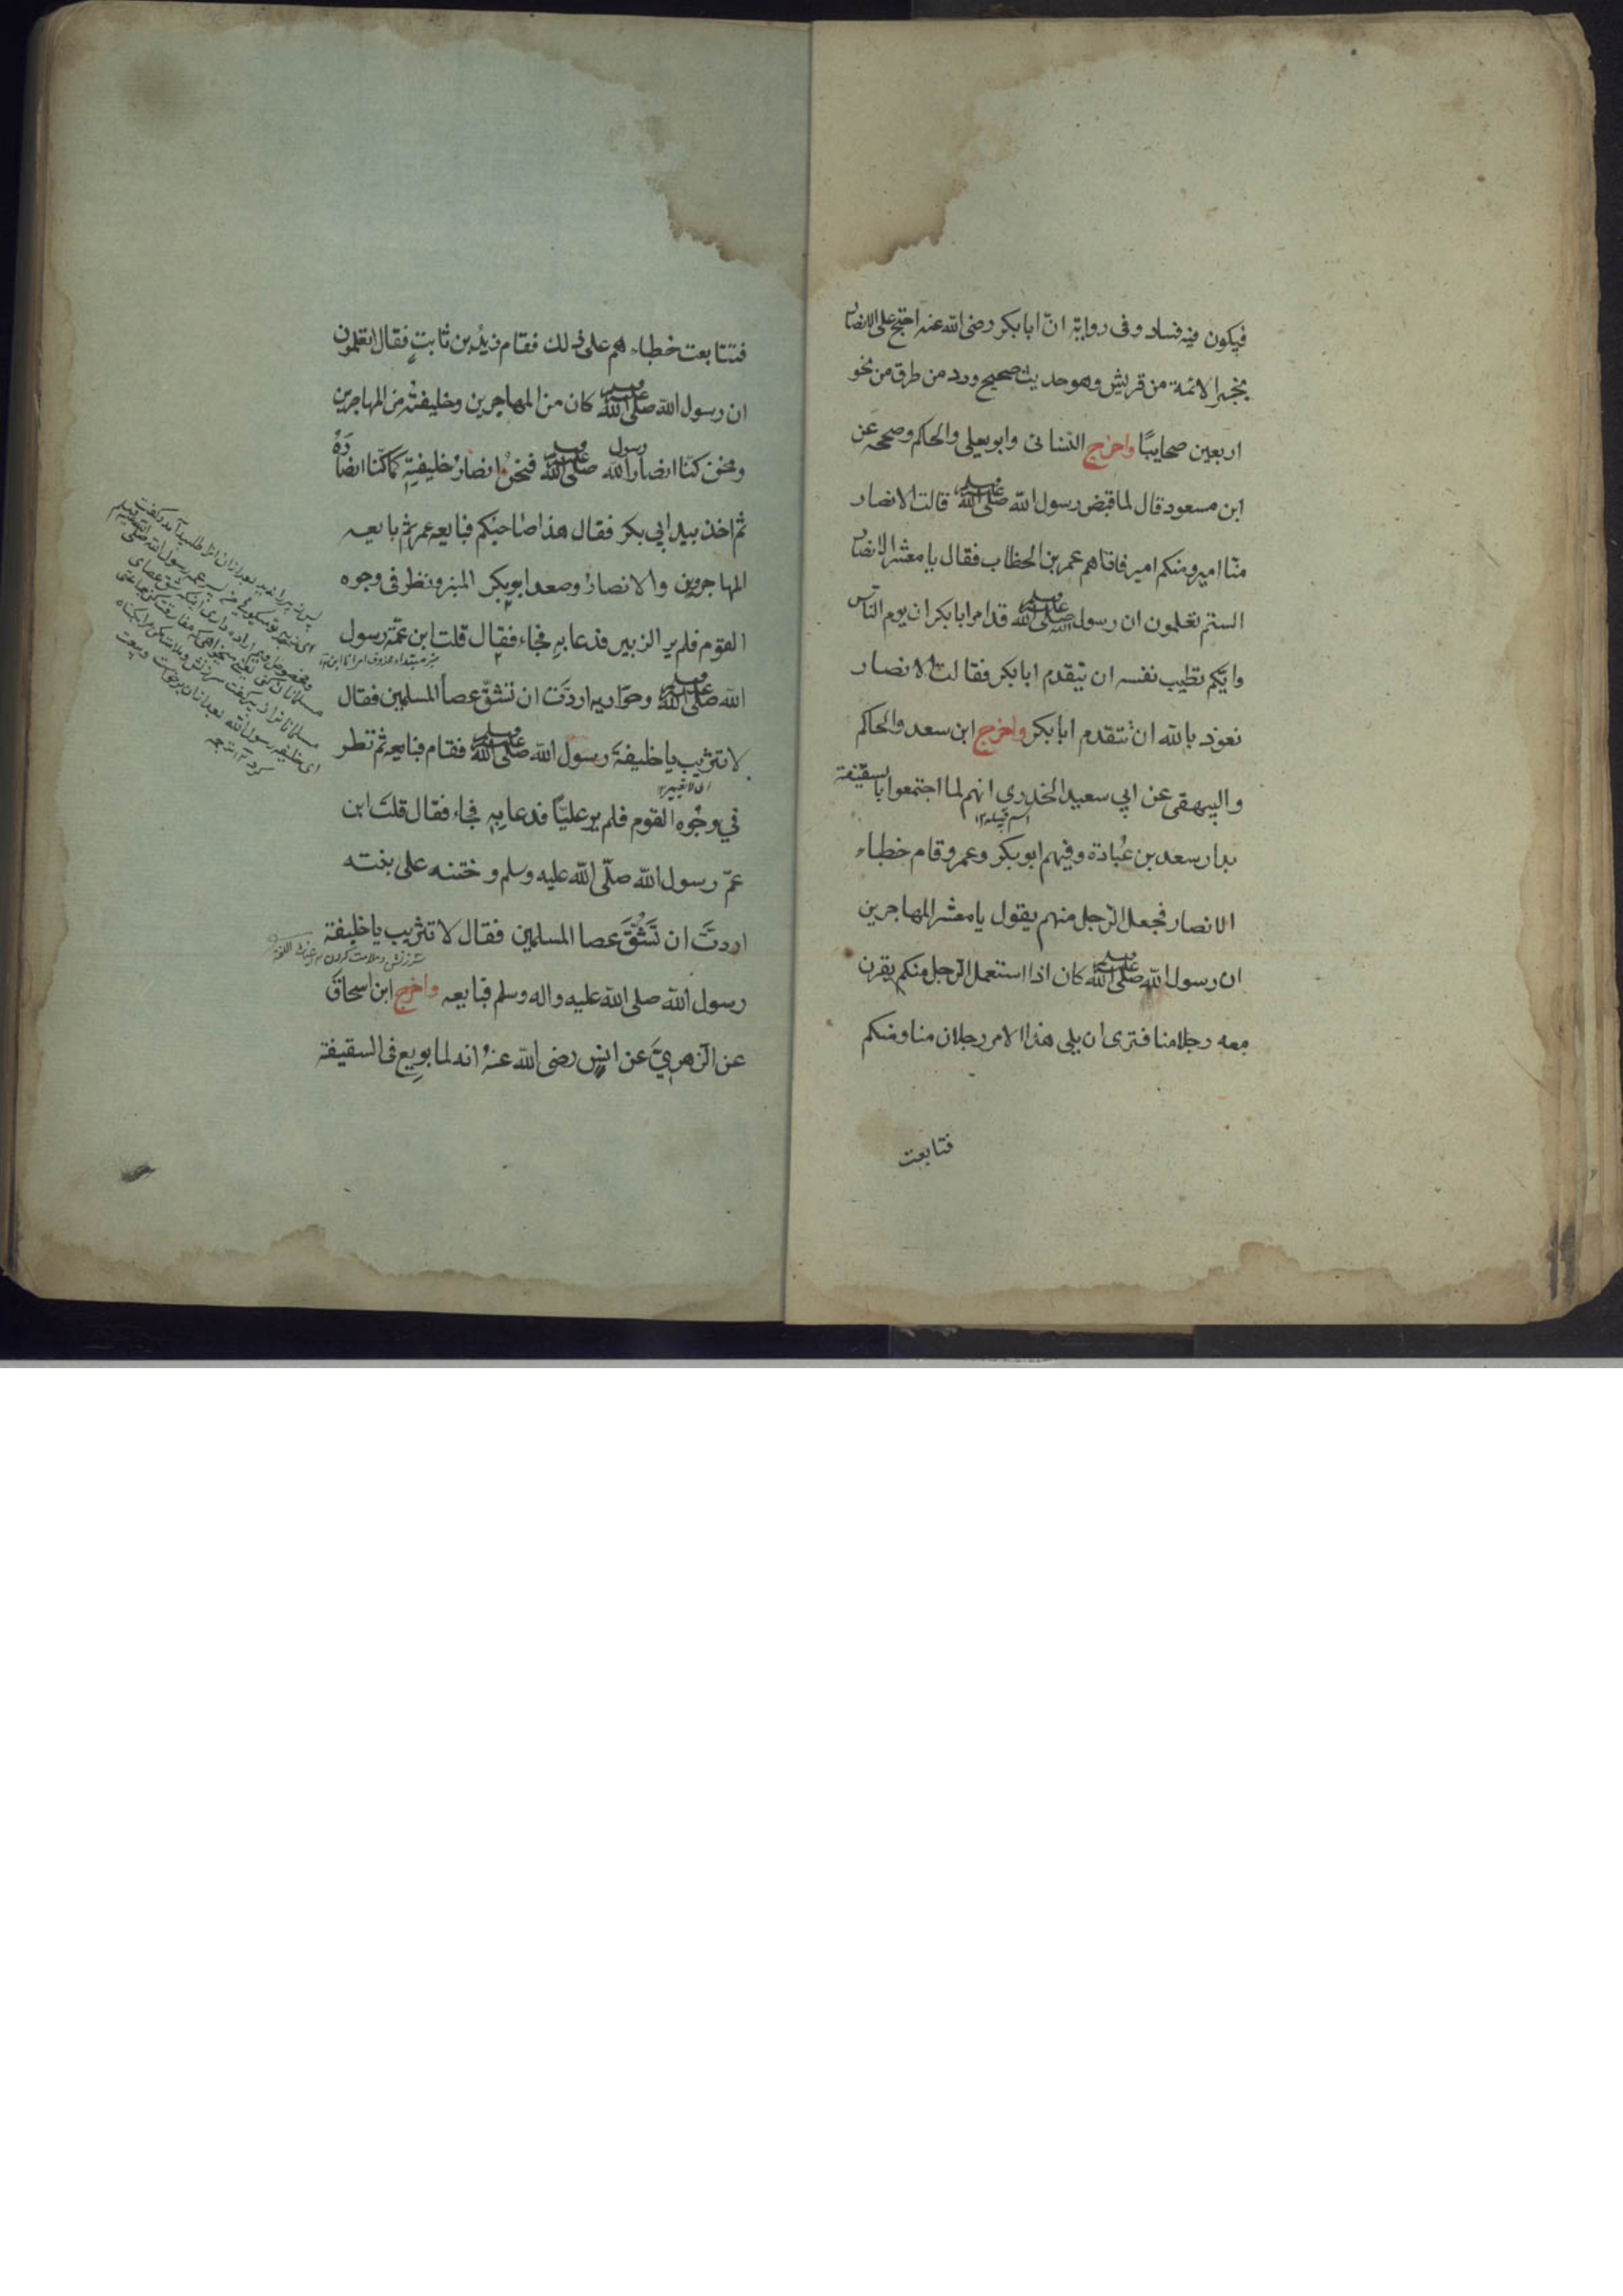 فيكون فيه فساد وفى رواية انّ ابا بكر رضى الله عنه احتج على الانصار
بخبر الائمة من قريش وهو حديث صحيح ورد من طرق من نحو
اربعين صحابيًا واخرج النسائى وابو يعلى والحاكم وصححه عن
ابن مسعود قال لما قبض رسول الله صلى الله عليه وسلم قالت الانصار
منّا امير ومنكم امير فاتاهم عمر بن الخطاب فقال يا معشر الانصار
الستم تعلمون ان رسول الله صلى الله عليه وسلم قد امر ابا بكر ان يوم الناس
وايّكم تطيب نفسه ان يتقدم ابا بكر فقالت الانصار
نعوذ بالله ان نتقدم ابا بكر واخرج ابن سعد والحاكم
والبيهقى عن ابي سعيد الخدري انهم لما اجتمعوا بالسقيفة
اسم قبيله ١٢
بدار سعد بن عُبادة وفيهم ابو بكر وعمر وقام خطباء
الانصار فجعل الرّجل منهم يقول يا معشر المهاجرين
ان رسول الله صلى الله عليه وسلم كان اذا استعمل الرّجل منكم يقرن
معه رجلا منا فترى ان يلى هذا الامر رجلان منا ومنكم
فتتابعت
فتتابعت خطباءهم على ذلك فقام زيدُ بن ثابتٍ فقال اتعلمون
ان رسول الله صلى الله عليه وسلم كان من المهاجرين وخليفتُه من المهاجرين
ونحن كنّا انصار رسول الله صلى الله عليه وسلم فنحنُ انصارُ خليفيةِ كما كنّا انصارَهُ
ثم اخذ بيد ابي بكر فقال هذا صاحبُكم فبايعه عمر ثم بايعه
المهاجرين والانصارُ وصعد ابو بكر المنبر ونظر فى وجوه
القوم فلم ير الزبير فدعا بهِ فجاء فقال قلت ابن عمّة رسول
الله صلى الله عليه وسلم وحوّاريه اردَت ان تشقّ عصا المسلمين فقال
لا تثريب يا خليفةَ رسول الله صلى الله عليه وسلم فقام فبايعه ثم نظر
في وجُوه القوم فلم ير عليّا فدعا بِه فجاء فقال قلتَ ابن
عمّ رسول الله صلّى الله عليه وسلم وختنه على بنته
اردتَّ ان تَشُقَّ عصا المسلمين فقال لا تثريب يا خليفة
سرزنش وملامت كردن
رسول الله صلى الله عليه واله وسلم فبايعه واخرج ابن اسحاق
عن الزهريّ عن انس رضى الله عنهُ انه لما بويع فى السقيفة